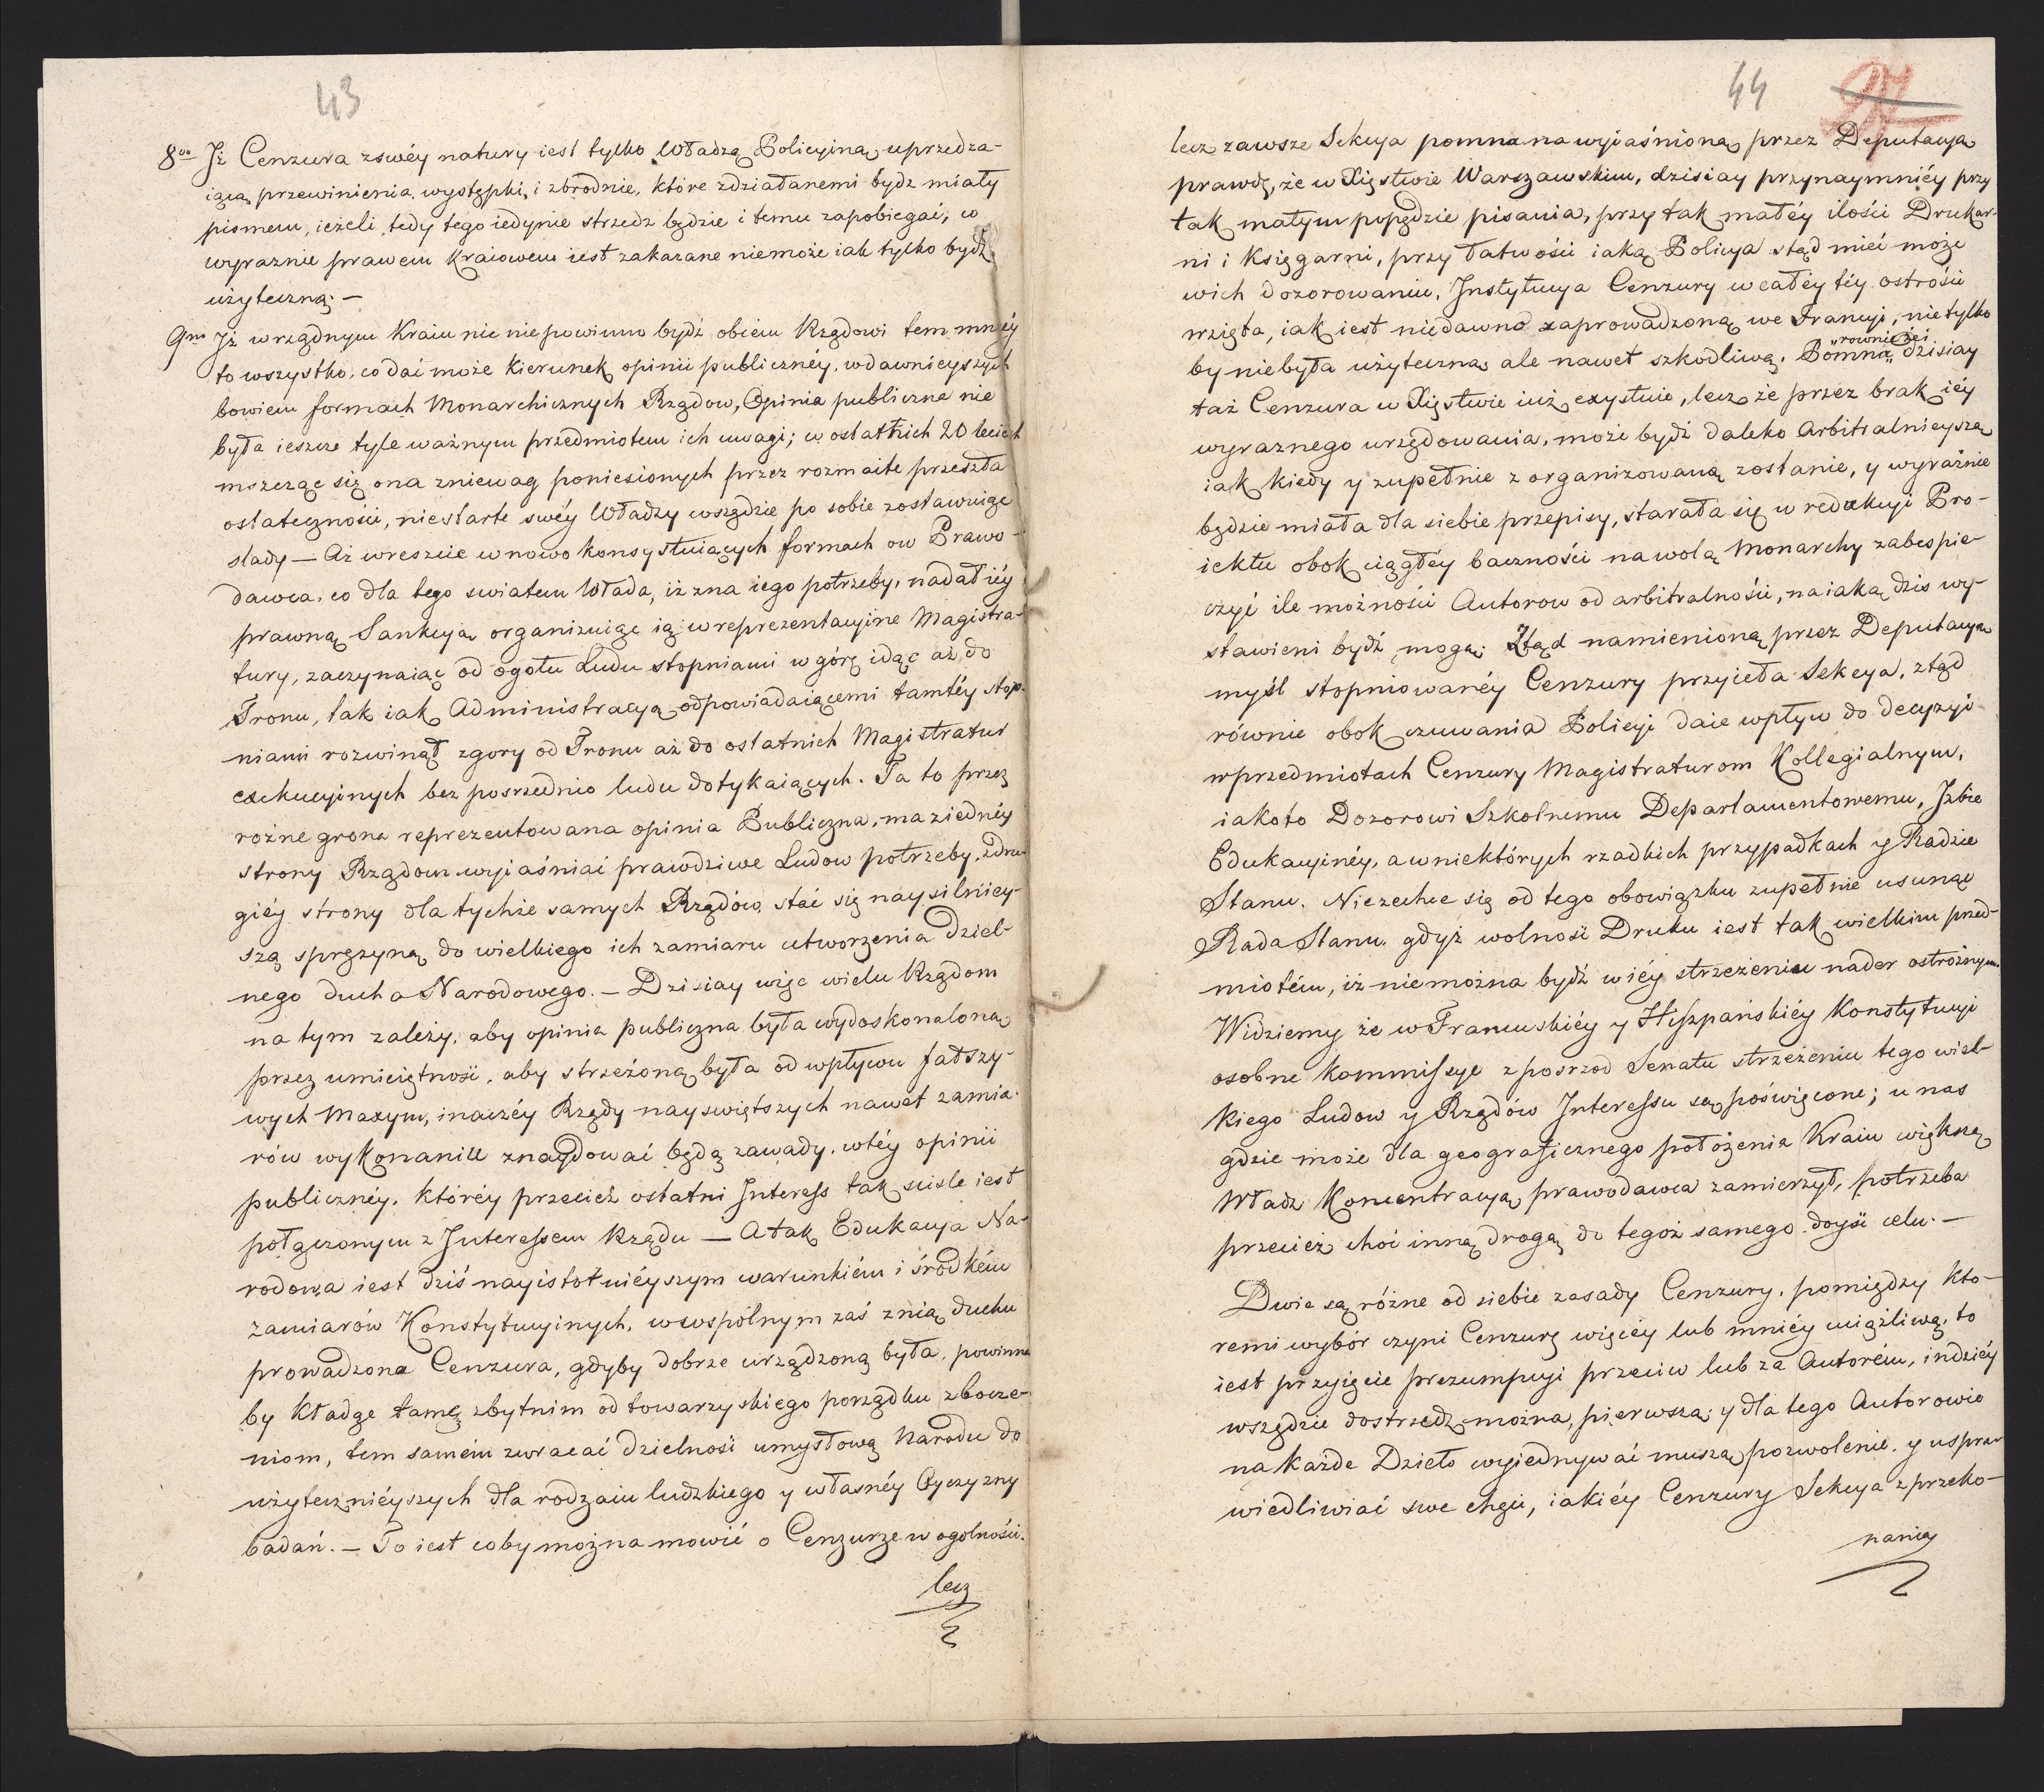 43
8vo Jż Cenzura zswéy natury iest tylko Władzą Policyiną uprzedza-
iącą przewinienia występki, i zbrodnie, które zdziałanemi bydz miały
pismem, ieżeli tedy tego iedynie strzedz będzie i temu zapobiegać, co
wyraznie prawem kraiowem iest zakazane niemoże iak tylko bydź
użyteczną. —
9no Jż wrządnym Kraiu nic niepowinno bydź obcém Rządowi tem mniéy
to wszystko, co dać może kierunek opinii publicznéy, wdawnieyszych
bowiem formach Monarchicznych Rządow, Opinia publiczna nie
była ieszcze tyle ważnym przedmiotem ich uwagi; w ostatnich 20 leciech
mszcząc się ona zniewag poniesionych przez rozmaite przeszła
ostateczności, niestarte swéy Władzy wszędzie po sobie zostawuiąc
slady — Aż wreszcie wnowo konsystuiących formach ow Prawo-
dawca, co dla tego swiatem Włada, iż zna iego potrzeby, nadał iéy
prawną Sankcyą organizuiąc ią wreprezentacyine Magistra-
tury, zaczynaiąc od ogołu Ludu stopniami w górę idąc aż do
Tronu, tak iak Administracyą odpowiadaiącemi tamtéy stop-
niami rozwinął zgory od Tronu aż do ostatnich Magistratur
exekucyinych bez posrzednio ludu dotykaiących. Ta to przez
rożne grona reprezentowana opinia Publiczna, ma ziednéy
strony Rządom wyiaśniać prawdziwe Ludow potrzeby, zdru-
giéy strony dla tychże samych Rządów, stać się naysilniey-
szą sprężyną do wielkiego ich zamiaru utworzenia dziel-
nego ducha Narodowego. — Dzisiay więc wielu Rządom
na tym zależy, aby opinia publiczna była wydoskonaloną
przez umieiętność, aby strzeżoną była od wpływu fałszy-
wych Maxym, inaczéy Rządy nayswiętszych nawet zamia-
rów wykonaniu znaydować będą zawady, wtéy opinii
publicznéy, któréy przecież ostatni Interess tak scisle iest
połączonym z Interessem Rządu — A tak Edukacya Na-
rodowa iest dziś nayistotniéyszym warunkiém i środkém
zamiarów Konstytucyinych, wewspólnym zaś znią duchu
prowadzona Cenzura, gdyby dobrze urządzoną była, powinna
by Kładąc tamę zbytnim od towarzyskiego porządku zbocze-
niom, tem samém zwracać dzielność umysłową Narodu do
użyteczniéyszych dla rodzaiu ludzkiego y własnéy Oyczyzny
badań. — To iest coby można mowić o Cenzurze w ogolności.
lecz
44
lecz zawsze Sekcya pomna na wyiaśnioną przez Deputacyą
prawdę, że w Xięstwie Warszawskim, dzisiay przynaymniéy przy
tak małym popędzie pisania, przy tak małéy ilości Drukar-
ni i Księgarni, przy łatwości iaką Policya stąd mieć może
wich dozorowaniu, Instytucya Cenzury wcałéy téy ostrości
wzięta, iak iest niedawno zaprowadzoną we Francyi, nietylko
by niebyła użyteczną ale nawet szkodliwą. Pomna „rownie że i dzisiay
taż Cenzura w Xięstwie iuż exystuie, lecz że przez brak iéy
wyraznego urzędowania, może bydź daleko Arbitralnieyszą
iak kiedy y zupełnie zorganizowaną zostanie, y wyraźnie
będzie miała dla siebie przepisy, starała się w redakcyi Pro-
iektu obok ciągłéy baczności na wolą Monarchy zabespie-
czyć ile możności Autorow od arbitralności, na iaką dzis wy-
stawieni bydź mogą; Ztąd namienioną przez Deputacyą
myśl stopniowanéy Cenzury przyięła Sekcya, ztąd
równie obok czuwania Policyi daie wpływ do decyzyi
wprzedmiotach Cenzury Magistraturom Kollegialnym,
iakoto Dozorowi Szkolnemu Departamentowemu, Jzbie
Edukacyinéy, a wniektórych rzadkich przypadkach y Radzie
Stanu. Niezechce się od tego obowiązku zupełnie usunąć
Rada Stanu, gdyż wolność Druku iest tak wielkim przed-
miotém, iż niemożna bydź w iéy strzeżeniu nader ostróżnym.
Widziemy że w Francuskiéy y Hiszpańskiéy Konstytucyi
osobne Kommissye z posrzod Senatu strzeżeniu tego wiel-
kiego Ludow y Rządów Interessu są poświęcone; u nas
gdzie może dla geograficznego położenia Kraiu większą
Władz Koncentracyą prawodawca zamierzył, potrzeba
przecież choć inną drogą do tegoż samego doyść celu. —
Dwie są różne od siebie zasady Cenzury, pomiędzy kto-
remi wybór czyni Cenzurę więcéy lub mniéy uciążliwą, to
iest przyięcie prezumpcyi przeciw lub za Autorém, indziéy
wszędzie dostrzedz można, pierwszą; y dla tego Autorowie
na każde Dzieło wyiednywać muszą pozwolenie, y uspra-
wiedliwiać swe chęci, iakiéy Cenzury Sekcya z przeko-
nania